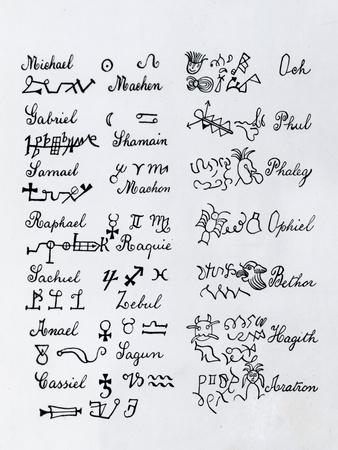 Michael ☉ ♌
Machen
Gabriel ☽ ♋
Shamain
Samael ♂ ♈ ♏
Machon
Raphael ☿ ♊ ♍
Raquie
Sachiel ♃ ♐ ♓
Zebul
Anael ♀ ♉ ♎
Sagun
Cassiel ♄ ♑ ♒
Och
Phul
Phaleg
Ophiel
Bethor
Hagith
Aratron